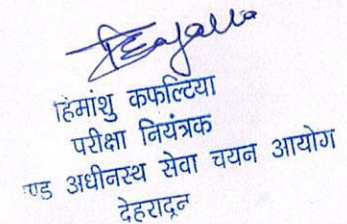 हिमांशु कफल्टिया
परीक्षा नियंत्रक
ण्ड अधीनस्थ सेवा चयन आयोग
देहरादून